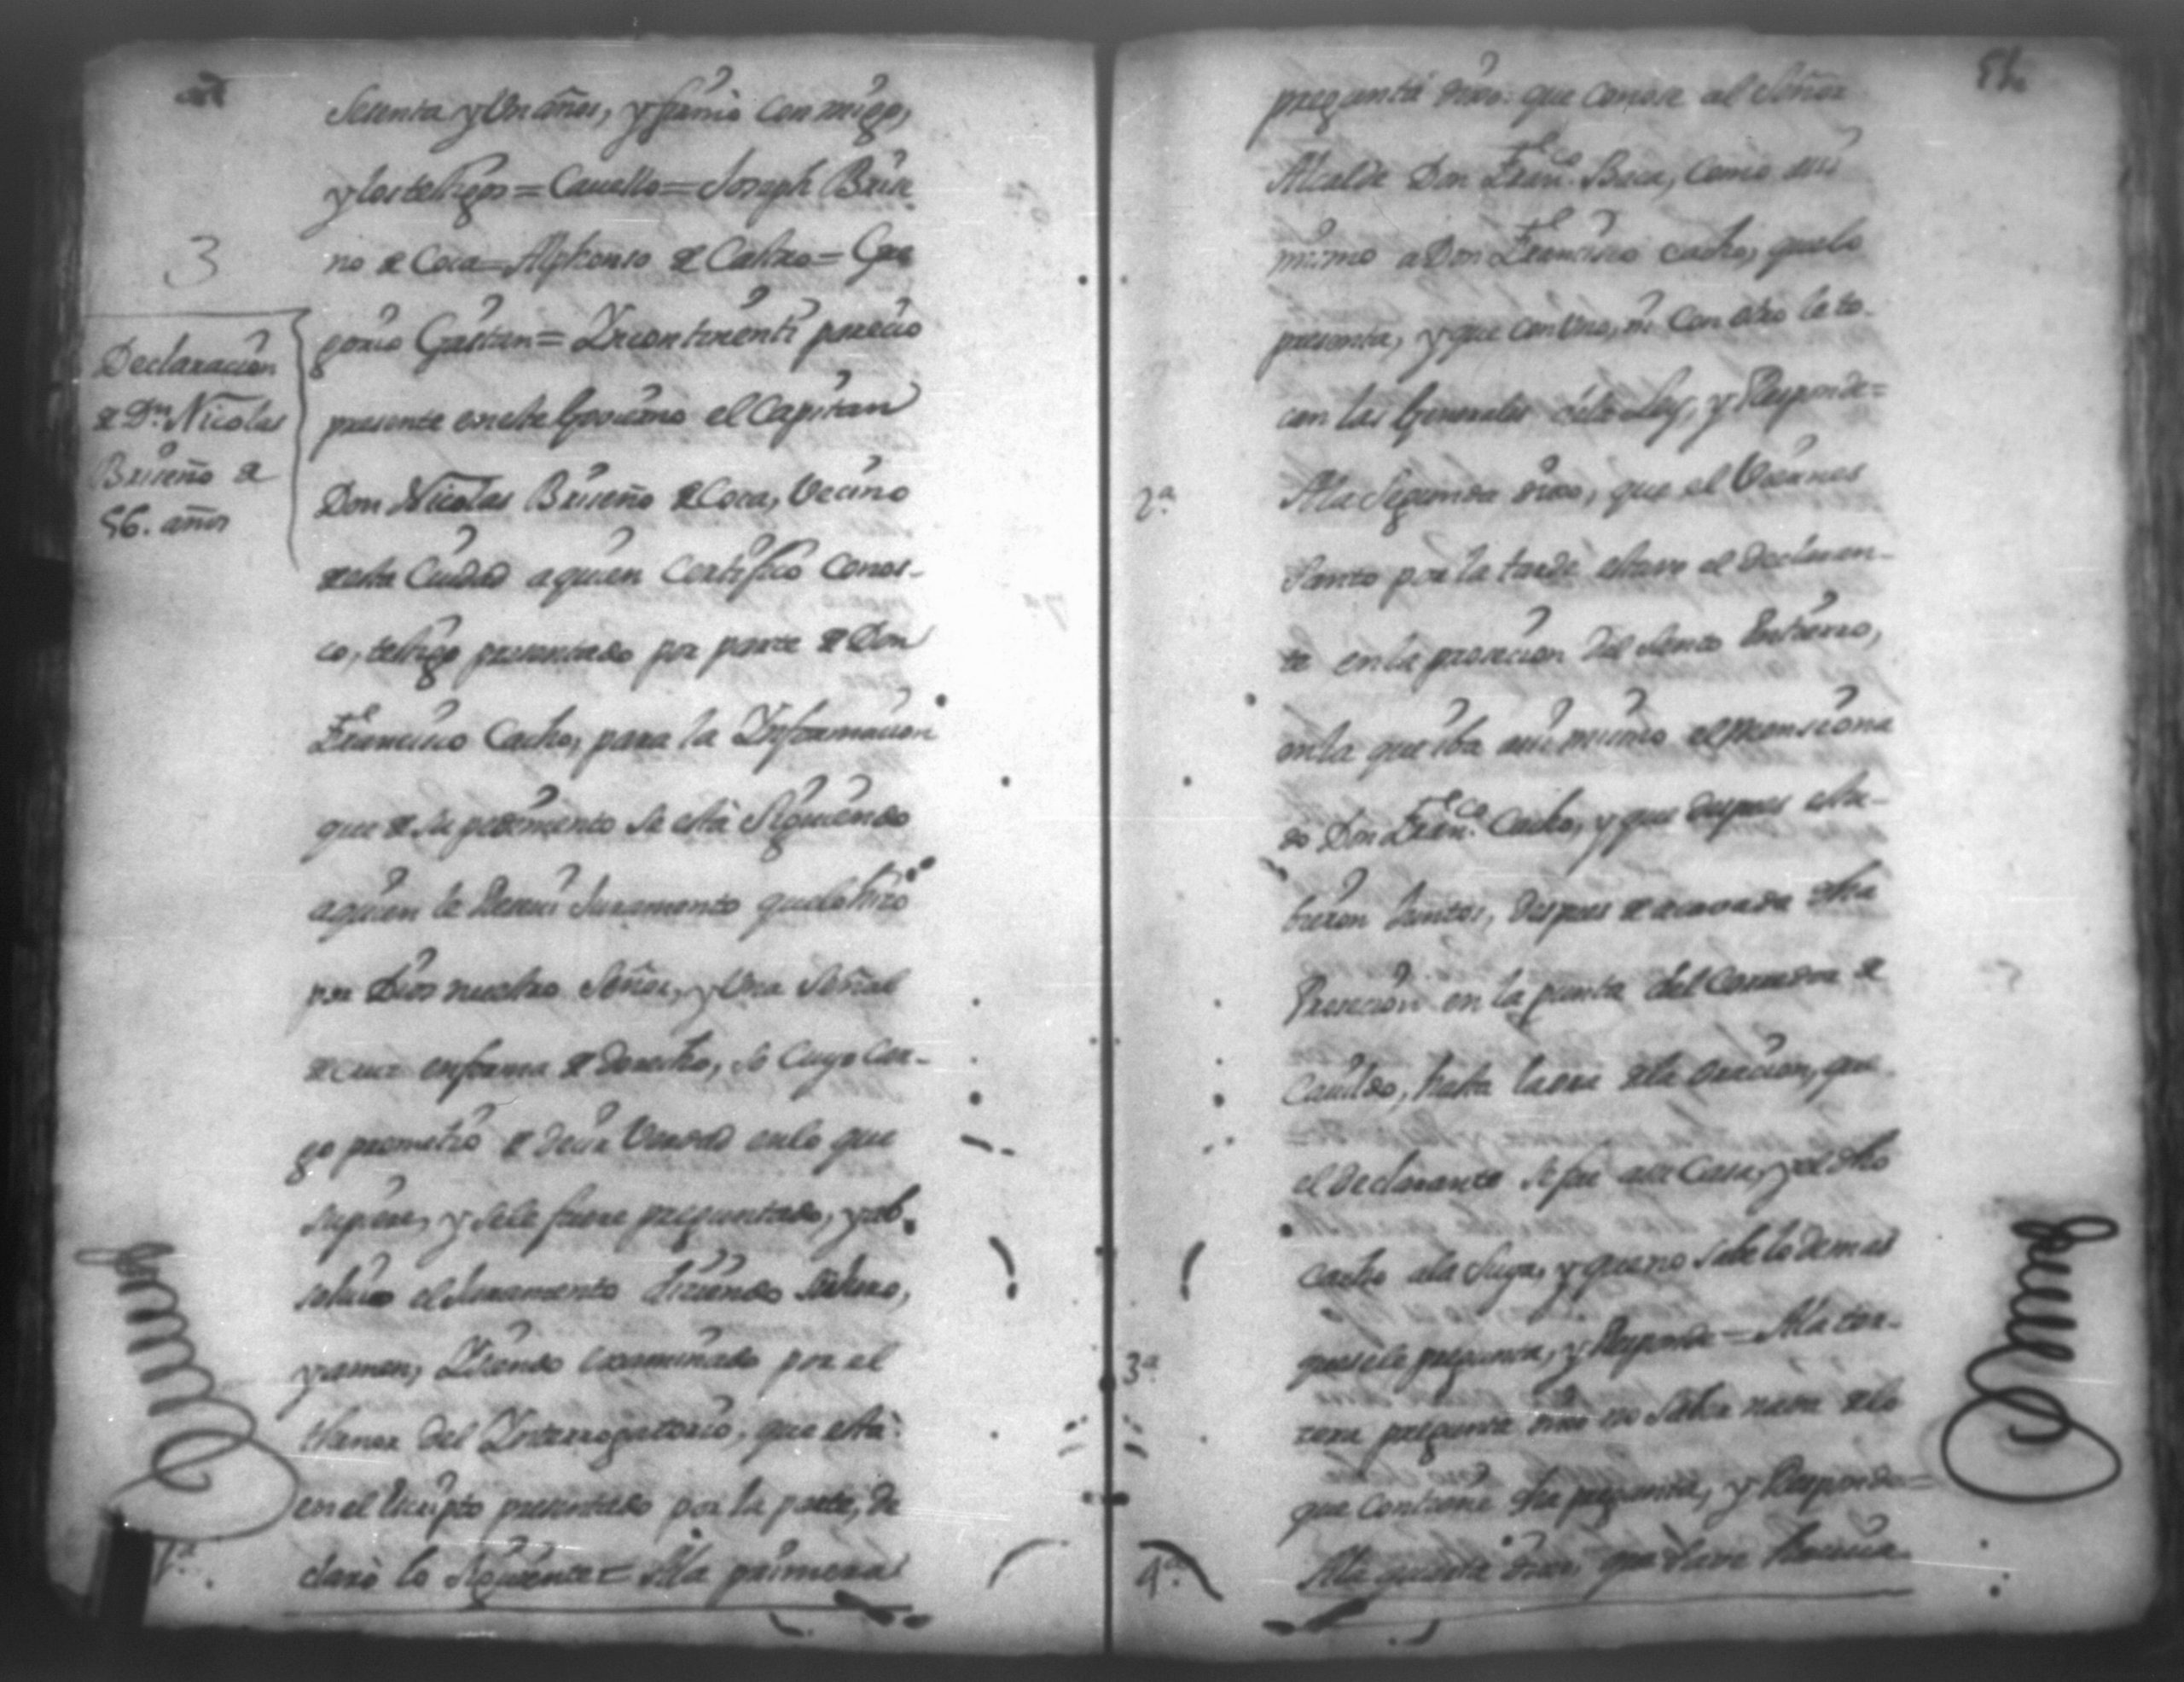 Setenta y Un años, y firmò con migo,
y los testigos = Cavallo = Joseph Brise
no de Coca = Alphonso de Castro = Gre
gorio Gaitan = Incontinenti parecio
3
Declaracion
de Dn. Nicolas
Briseño de
56. años
presente en este Govierno el Capitan
Don Nicolas Briseño de Coca, Vecino
de esta Ciudad a quien Certifico Conos-
co, testigo presentado por parte de Don
Francisco Cacho, para la Informacion
que de su pedimento se està Siguiendo
a quien le Reciví Juramento que lo hizo
por Dios nuestro Señor, y Una Señal
de cruz en forma de derecho, so Cuyo Car-
go prometio de decir Verdad en lo que
supiere, y se le fuere preguntado, y ab
solvio el Juramento diziendo Sí Juro,
y amen, Ziendo examinado por el
thenor del Interrogatorio, que està
en el Escripto presentado por la parte, de
1a.
clarò lo Siguiente = A la primera
52
pregunta dixo: que Conose al Señor
Alcalde Don Franco. Baca, Como assi
mismo a Don Francisco Cacho, que lo
presenta, y que con Uno, ni Con otro le to-
can las Generales de la Ley, y Responde =
2a.
A la Segunda dixo, que el Viernes
Santo por la tarde estuvo el declaran-
te en la prosecion del Santo Entierro,
en la que iba assi mismo el mensiona
do Don Franco. Cacho, y que despues estu-
bieron Juntos, despues de acavada dha
Prosecion en la punta del Corredor de
Cavildo, hasta la ora de la oracion, que
el declarante se fue a su Casa, y el dho
Cacho a la Suya, y que no Sabe lo demas
que se le pregunta, y Responde = A la ter-
3a.
zera pregunta dixo no Saber nada de lo
que Contiene dha pregunta, y Responde =
4a.
A la quarta dixo: que